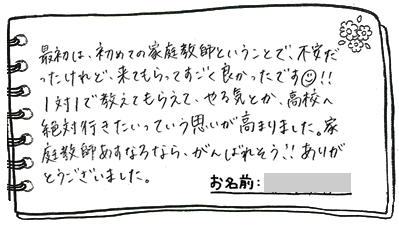 最初は、初めての家庭教師ということで、不安だ
ったけれど、来てもらってすごく良かったです☺!!
1対1で教えてもらえて、やる気とか、高校へ
絶対行きたいっていう思いが高まりました。家
庭教師あすなろなら、がんばれそう!!ありが
とうございました。
お名前: